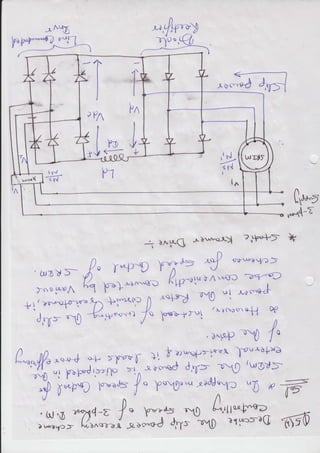 Q5(b) Describe the slip power recovery scheme
Controlling the speed of 3-phase I.M.
Sol
* In Chopper method of speed Control for
SRIM, the slip power is dissipated in the
external resistance & it leads to poor efficiency
of the drive.
* However, instead of wasting the slip
power in the Rotor circuit resistance, it
can be conveniently converted by Various
schemes for speed Control of SRIM.
* Static Kramer Drive :-
3-phase
Supply
V1
SRIM
Slip power
Ld
Rd
Vd
Vdc
Diode
Rectifier
Line Commutated